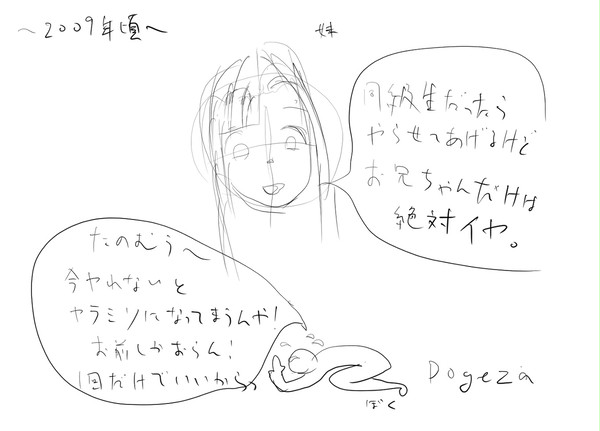 ～2009年頃～
妹
同級生だったら
やらせてあげるけど
お兄ちゃんだけは
絶対イヤ。
たのむぅ～
今やれないと
ヤラミソになってまうんや!
お前しかおらん!
1回だけでいいからっ
Dogeza
ぼく